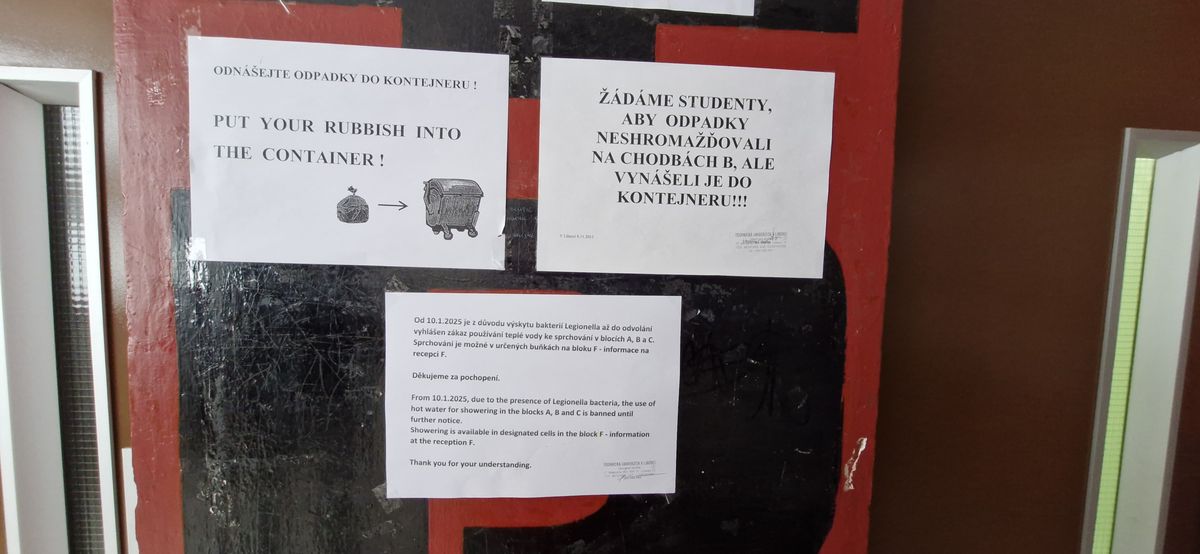 ODNÁŠEJTE ODPADKY DO KONTEJNERU !
PUT YOUR RUBBISH INTO
THE CONTAINER !
ŽÁDÁME STUDENTY,
ABY ODPADKY
NESHROMAŽĎOVALI
NA CHODBÁCH B, ALE
VYNÁŠELI JE DO
KONTEJNERU!!!
TECHNICKÁ UNIVERZITA V LIBERCI
Od 10.1.2025 je z důvodu výskytu bakterií Legionella až do odvolání
vyhlášen zákaz používání teplé vody ke sprchování v blocích A, B a C.
Sprchování je možné v určených buňkách na bloku F - informace na
recepci F.
Děkujeme za pochopení.
From 10.1.2025, due to the presence of Legionella bacteria, the use of
hot water for showering in the blocks A, B and C is banned until
further notice.
Showering is available in designated cells in the block F - information
at the reception F.
Thank you for your understanding.
TECHNICKÁ UNIVERZITA V LIBERCI